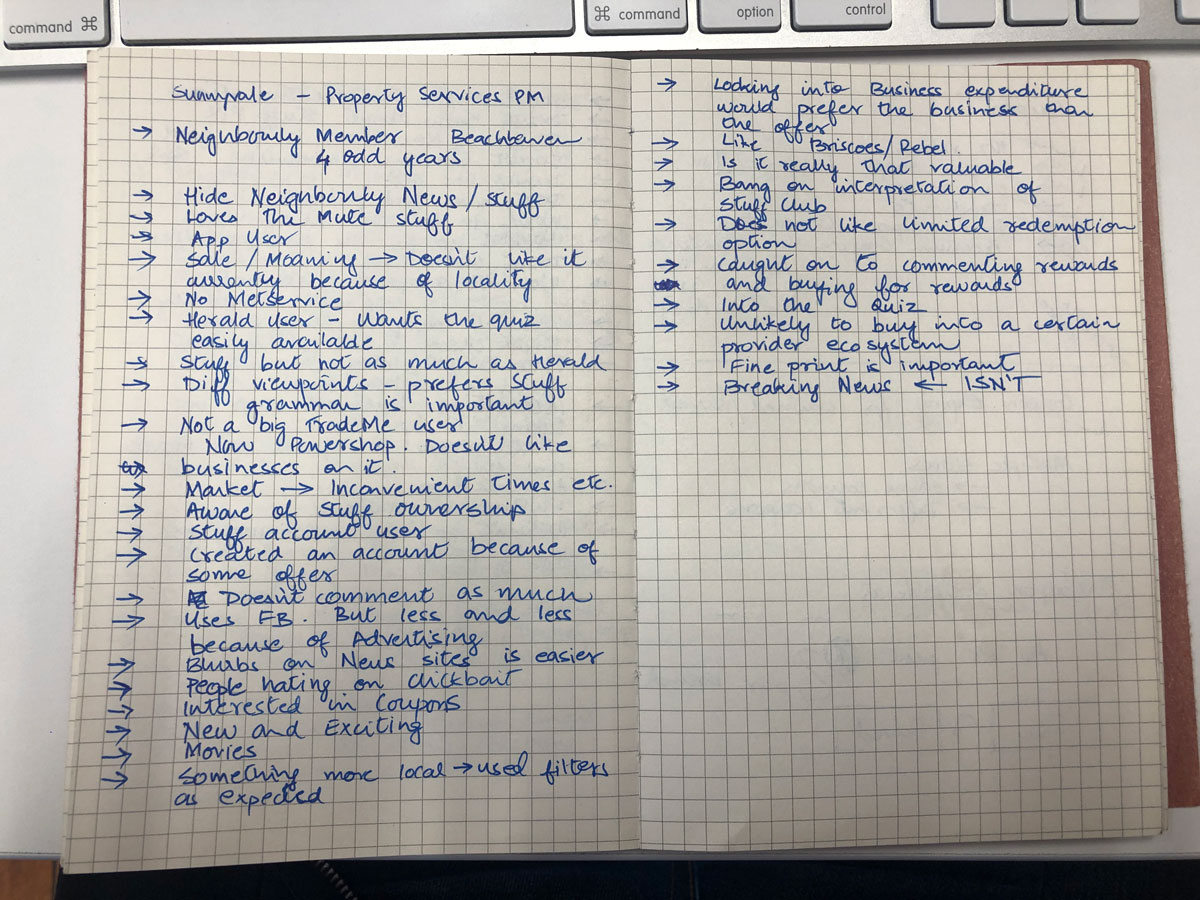 command ⌘
⌘ command
option
control
Sunnyvale – Property Services PM
→ Neighbourly Member Beachhaven
4 odd years
→ Hide Neighbourly News / Stuff
→ Loves the Mute stuff
→ App User
→ Sale / Moaning → Doesn't like it
currently because of locality
→ No Metservice
→ Herald User – Wants the quiz
easily available
→ Stuff but not as much as Herald
→ Diff viewpoints – prefers Stuff
grammar is important
→ Not a big TradeMe user
Now Powershop. Doesn't like
businesses on it.
→ Market → Inconvenient times etc.
→ Aware of Stuff ownership
→ Stuff account user
→ Created an account because of
some offer
→ Doesn't comment as much
→ Uses FB. But less and less
because of Advertising
→ Blurbs on News sites is easier
→ People hating on clickbait
→ Interested in Coupons
→ New and Exciting
→ Movies
→ Something more local → used filters
as expected
→ Looking into Business expenditure
would prefer the business than
the offer
→ Like Briscoes/Rebel.
→ Is it really that valuable
→ Bang on interpretation of
Stuff Club
→ Does not like limited redemption
option
→ caught on to commenting rewards
and buying for rewards
→ Into the Quiz
→ Unlikely to buy into a certain
provider ecosystem
→ Fine print is important
→ Breaking News ← ISN'T